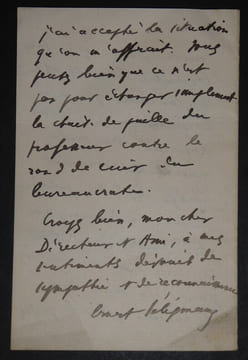 j'ai accepté la situation
qu'on m'offrait. Vous
sentez bien que ce n'est
pas pour échanger simplement
la chaise de paille du
professeur contre le
rond de cuir du
bureaucrate.
Croyez bien, mon cher
Directeur et Ami, à mes
sentiments dévoués de
sympathie et de reconnaissance